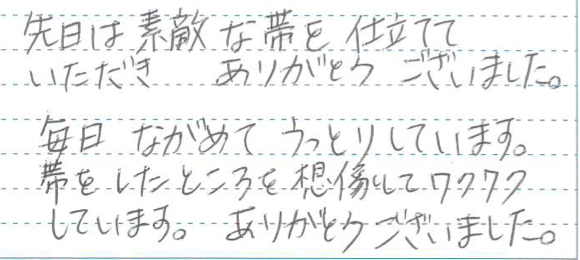 先日は素敵な帯を仕立てて
いただき ありがとう ございました。
毎日 ながめて うっとりしています。
帯をしたところを想像してワクワク
しています。 ありがとうございました。